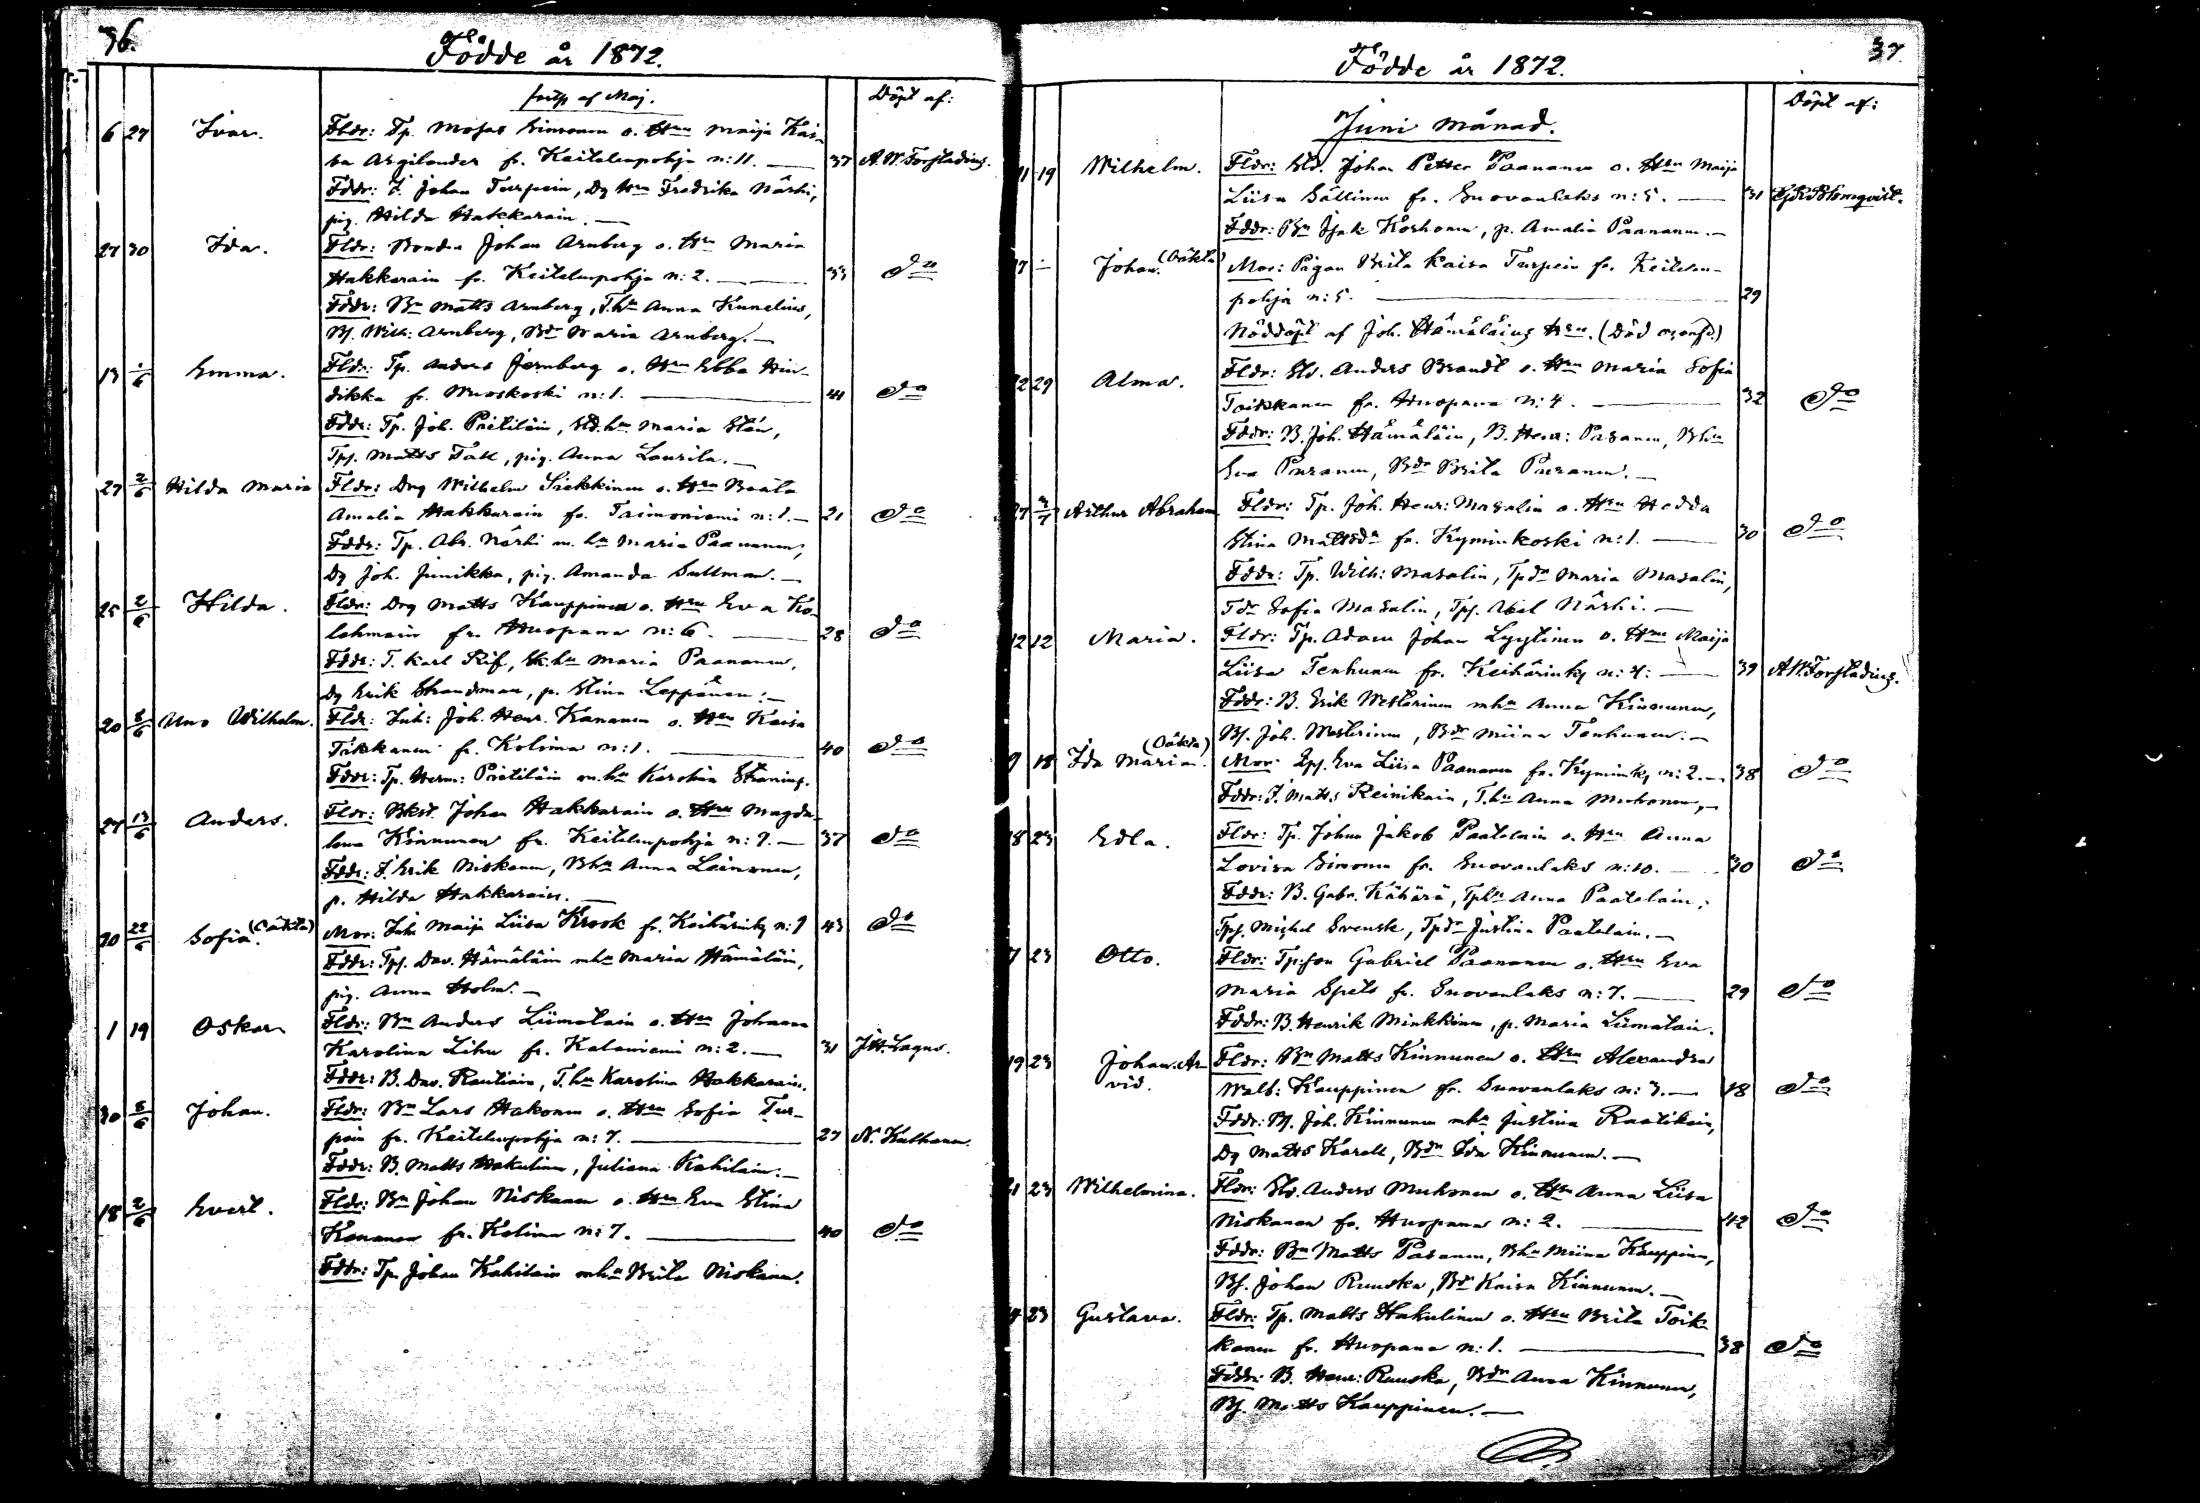 36.
Födde år 1872.
forts. af Maj.
Döpt af:
6 27 Ivar. Fldr: Tp. Mosas Simonen o. Hru Maija Kai-
sa Argilander fr. Keitelenpohja n:11. — 37 A.W. Forsladius.
Fddr: I. Johan Turpein, Dg hru Fredrika Närhi,
pig. Hilda Hakkarain. —
27 30 Ida. Fldr: Bonden Johan Arnberg o. Hru Maria
Hakkarain fr. Keitelenpohja n:2. — 33 do
Fddr: Bn Matts Arnberg, T.hu Anna Kunelius,
Bs. Wilh: Arnberg, Bdr Maria Arnberg. —
13 1/6 Emma. Fldr: Tp. Anders Jernberg o. Hru Ebba Hin-
dikka fr. Muoskoski n:1. — 41 do
Fddr: Tp. Joh. Pietiläin, Sld.hu Maria Sten,
Tps. Matts Fall, pig. Anna Laurila. —
27 2/6 Hilda Maria Fldr: Drg Wilhelm Siekkinen o. Hru Beata
Amalia Hakkarain fr. Taimoniemi n:1. — 21 do
Fddr: Tp. Abr. Närhi m. hu Maria Paananen,
Dg Joh. Junikka, pig. Amanda Sallman. —
25 2/6 Hilda. Fldr: Drg Matts Kauppinen o. Hru Eva Ko-
lehmain fr. Huopana n:6. — 28 do
Fddr: T. Karl Rif, Sk.hu Maria Paananen,
Dg Erik Strandman, p. Stina Leppänen. —
20 8/6 Uno Wilhelm. Fldr: Inh: Joh. Henr. Kananen o. Hru Kaisa
Tikkanen fr. Kolima n:1. — 40 do
Fddr: Tp. Herm: Pietiläin m.hu Karolina
27 13/6 Anders. Fldr: Bkst. Johan Hakkarain o. Hru Magda-
lena Kinnunen fr. Keitelenpohja n:7. — 37 do
Fddr: I. Erik Niskanen, Bhu Anna Leinonen,
p. Hilda Hakkarain. —
20 22/6 Sofia. (Oäkta) Mor: Inh. Maija Liisa Krook fr. Keihärinky n:9 43 do
Fddr: Tps. Dav. Hämäläin mhu Maria Hämäläin,
pig. Anna Holm. —
1 19 Oskar Fldr: Bn Anders Liimatain o. Hru Johanna
Karolina Lihu fr. Kalaniemi n:2. — 31 J.H. Lagus.
Fddr: B. Dav. Rautiain, T.hu Karolina Hakkarain.
30 8/6 Johan. Fldr: Bn Lars Hakonen o. Hru Sofia Tur-
pein fr. Keitelenpohja n:7. — 27 N. Kalhanen.
Fddr: B. Matts Hakulinen, Juliana Kahilain. —
18 2/6 Evert. Fldr: Bn Johan Niskanen o. Hru Eva Stina
Kananen fr. Kolima n:7. — 40 do
Fddr: Tp. Johan Kahilain mhu Brita Niskanen.
37.
Födde år 1872.
Juni månad.
Döpt af:
11 19 Wilhelm. Fldr: Sld. Johan Petter Paananen o. Hru Maija
Liisa Sällinen fr. Suovanlaks n:5. — 31
Fddr: Bn Isak Korhonen, p. Amalia Paananen. —
17 — Johan. (Oäkta) Mor: Pigan Brita Kaisa Turpein fr. Keitelen-
pohja n:5. — 29
Nöddöpt af Joh. Hämäläins Hru. (Död
22 29 Alma. Fldr: Sld. Anders Brandt o. Hru Maria Sofia
Toikkanen fr. Huopana n:4. — 32 do
Fddr: B. Joh. Hämäläin, B. Henr: Pasanen, Bhu
Eva Puranen, Bdr Brita Puranen. —
27 2/7 Arthur Abraham Fldr: Tp. Joh. Henr: Masalin o. Hru Hedda
Stina Mattsdr fr. Kyminkoski n:1. — 30 do
Fddr: Tp. Wilh: Masalin, Tpdr Maria Masalin,
Tdr Sofia Masalin, Tps. Abel Närhi. —
12 12 Maria. Fldr: Tp. Adam Johan Lyytinen o. Hru Maija
Liisa Tenhunen fr. Keihärinky n:4: — 39 A.W. Forsladius.
Fddr: B. Erik Westerinen mhu Anna Kinnunen,
Bs. Joh. Westerinen, Bdr Miina Tenhunen. —
9 18 Ida Maria. (Oäkta) Mor: Eva Liisa Paananen fr. Kyminky n:2. — 38 do
Fddr: I. Matts Reinikain, T.hu Anna Muhonen, —
18 23 Edla. Fldr: Tp. Johan Jakob Paatelain o. Hru Anna
Lovisa Simonen fr. Suovanlaks n:10. — 30 do
Fddr: B. Gabr. Kähärä, Tphu Anna Paatelain,
Tps. Michel Svensk, Tpdr Justina Paatelain. —
7 23 Otto. Fldr: Tp.son Gabriel Paananen o. Hru Eva
Maria Spets fr. Suovanlaks n:7. — 29 do
Fddr: B. Henrik Minkkinen, p. Maria Liimatain.
19 23 Johan Ar-
vid. Fldr: Bn Matts Kinnunen o. Hru Alexandra
Walb: Kauppinen fr. Suovanlaks n:3. — 18 do
Fddr: Bs. Joh. Kinnunen mhu Justina Raatikain,
Dg Matts Karell, Bdr Ida Kinnunen. —
21 23 Wilhelmina. Fldr: Sld. Anders Muhonen o. Hru Anna Liisa
Niskanen fr. Huopana n:2. — 42 do
Fddr: Bn Matts Pasanen, Bhu Miina Kauppinen,
Bs. Johan Ruuska, Bdr Kaisa Kinnunen. —
4 23 Gustava. Fldr: Tp. Matts Hakulinen o. Hru Brita Toik-
kanen fr. Huopana n:1. — 38 do
Fddr: B. Henr: Ruuska, Bdr Anna Kinnunen,
Bs. Matts Kauppinen. —